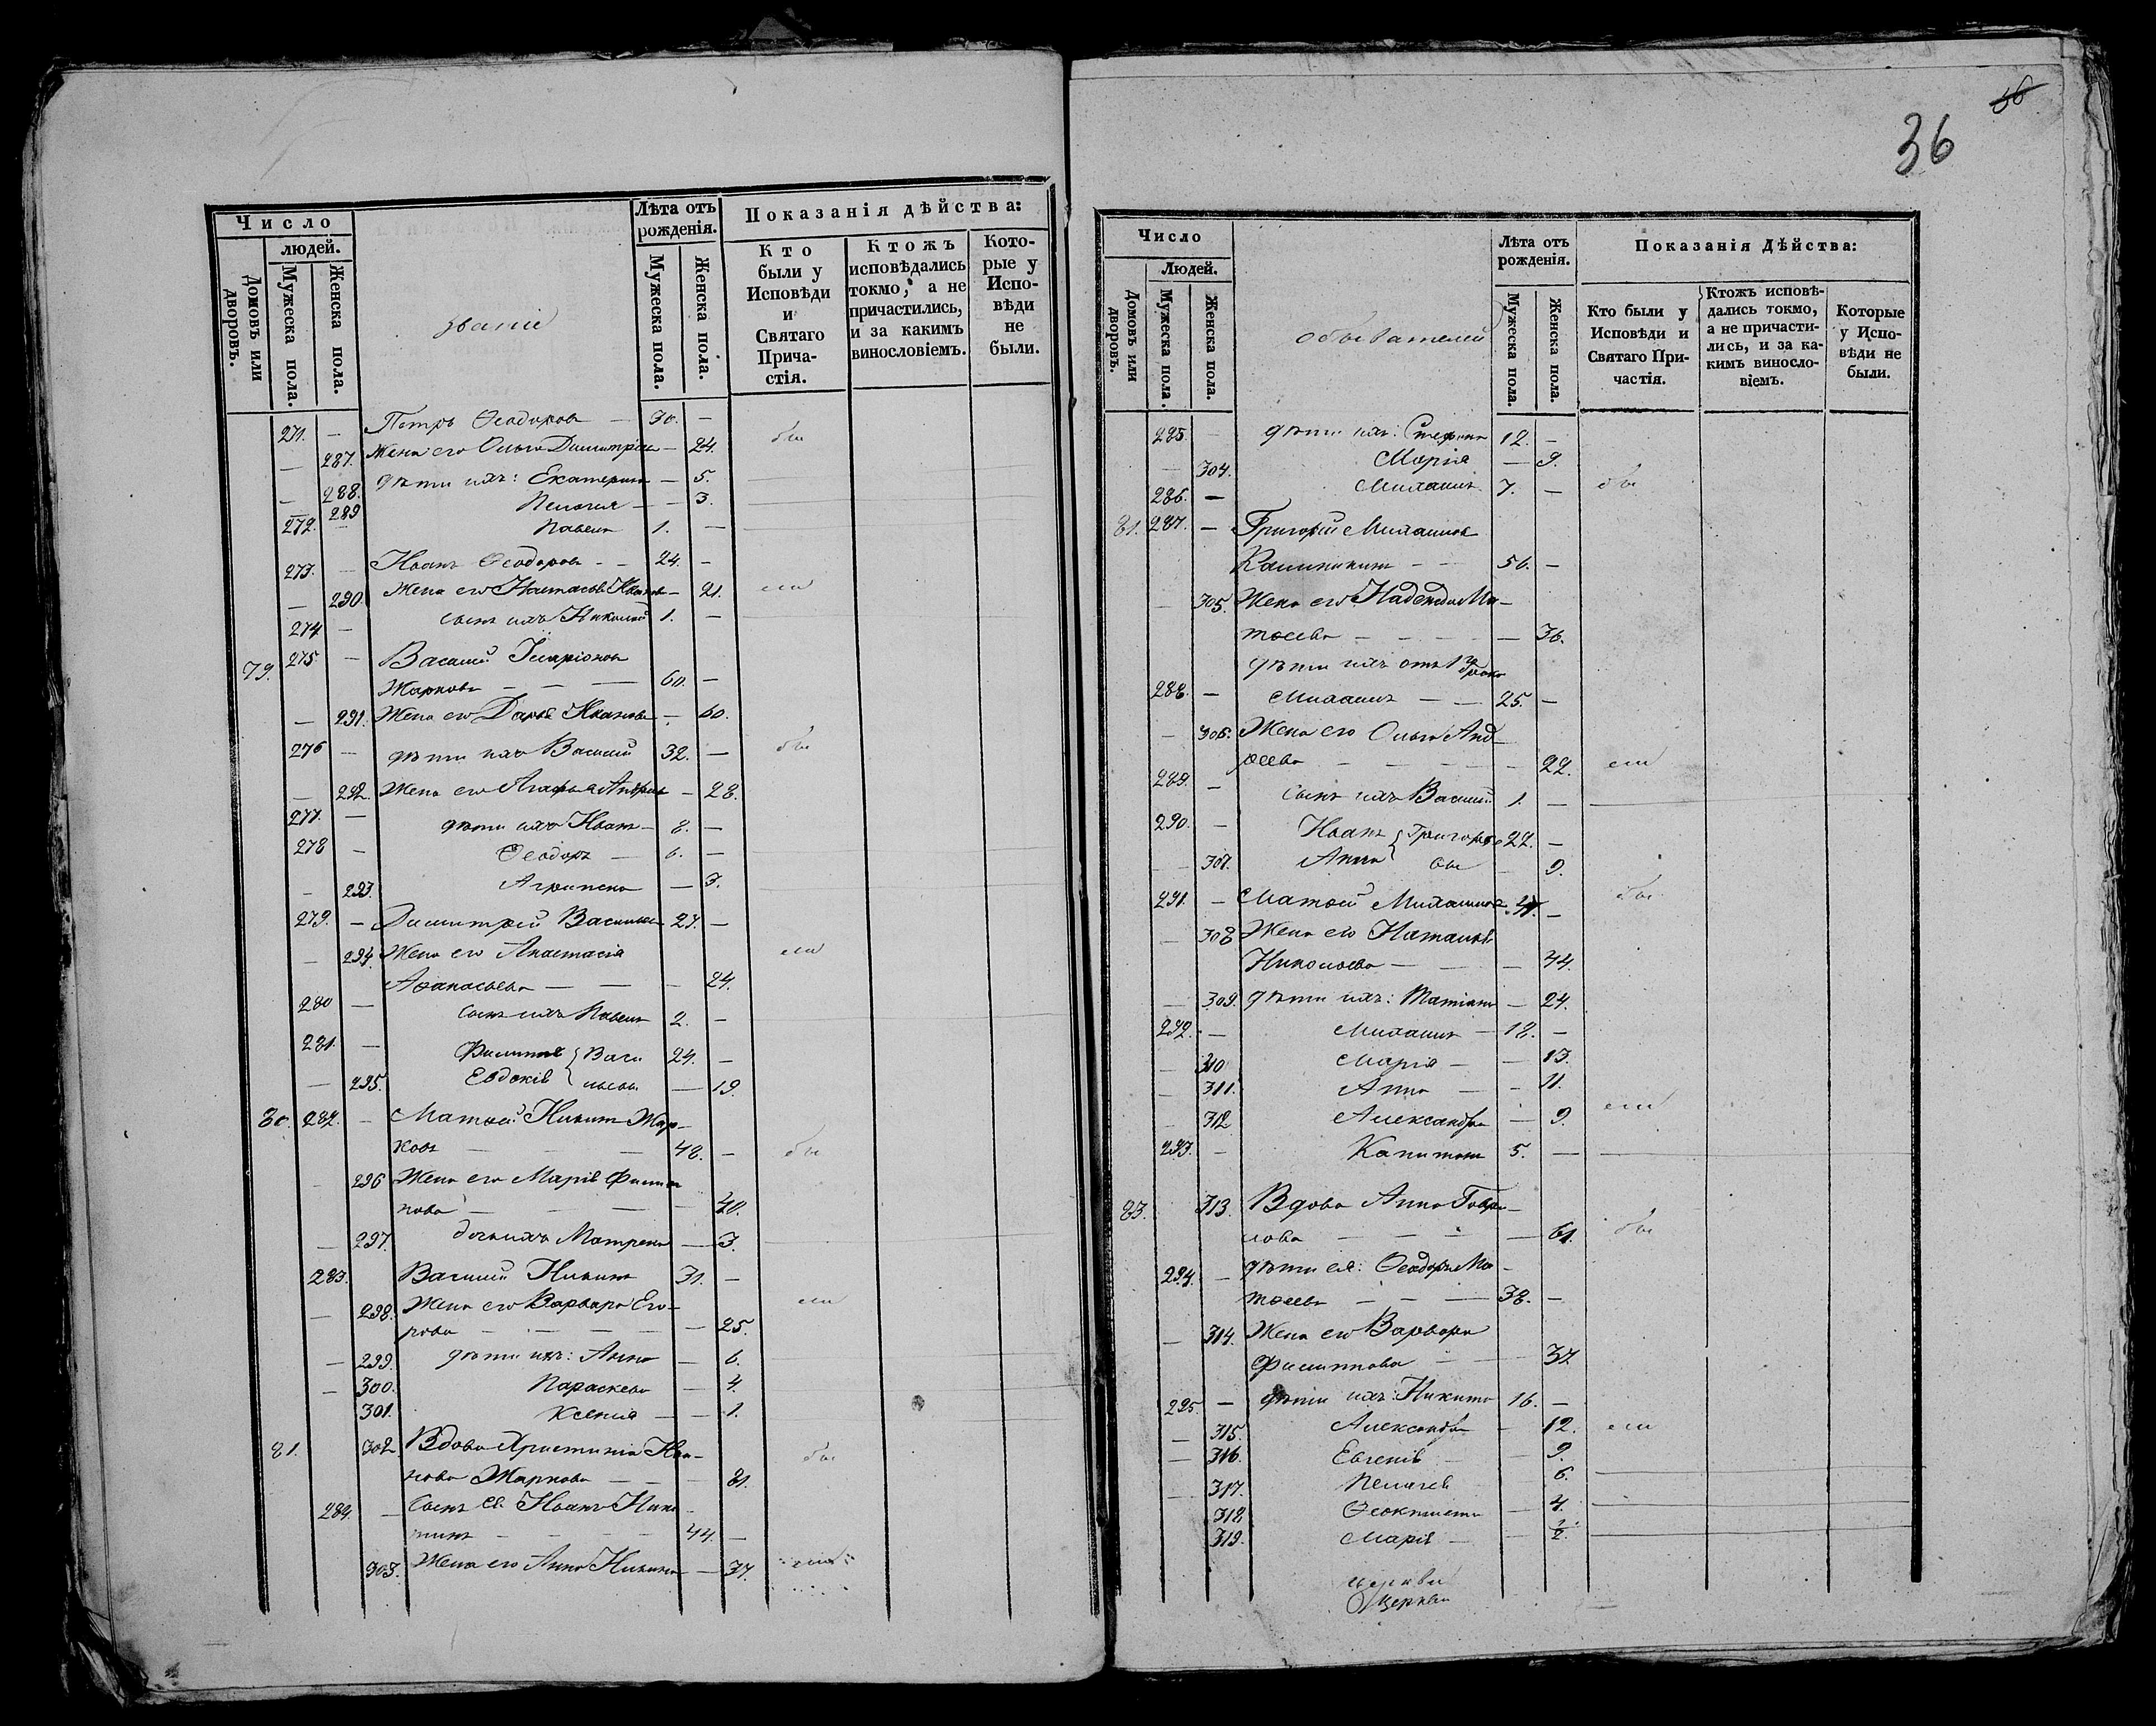 Число
людей.
Домовъ или дворовъ.
Мужеска пола.
Женска пола.
званіе
Лѣта отъ рожденія.
Мужеска пола.
Женска пола.
Показанія дѣйства:
Кто были у Исповѣди и Святаго Прича-стія.
Ктожъ исповѣдались токмо, а не причастились, и за какимъ винословіемъ.
Кото-рые у Испо-вѣди не были.
271. — Петръ Ѳеодоровъ — 30. —
— 287. Жена его Ольга Димитріева — 24. бы
— 288. дѣти ихъ: Екатерина — 5.
— 289 Пелагія — — 3.
272. — Павелъ 1. —
273. — Иванъ Ѳеодоровъ — — 24. —
— 290. Жена его Наталія Иванова — 21. ли
274 — сынъ ихъ Николай 1. —
79. 275 — Василій Иларіоновъ
Жарковъ — — — 60. —
— 291. Жена его Дарья Иванова — 60.
276 — дѣти ихъ Василій 32. — бы
— 292. Жена его Агафья — 28.
277. — дѣти ихъ Иванъ — 8. —
278 — Ѳеодоръ — 6. —
— 293. Агрипена — 3.
279. — Димитрій Васильевъ 27. —
— 294. Жена его Анастасія ли
Аѳанасьева — — — 24.
280 — сынъ ихъ Павелъ 2. —
281. — Филиппъ { Васи 24. —
— 295. Евдокія { льевы — 19.
80. 282. — Матѳей Никит. Жар-
ковъ — — 48. — бы
— 296 Жена его Марія Филип
пова — — — — 40.
— 297. дочь ихъ Матрена — 3.
283. Василій Никит. 31. —
— 298. Жена его Варвара Его- ли
рова — — — — 25.
— 299. дѣти ихъ: Анна — 6.
— 300. Параскева — 4.
301. Ксенія — — 1.
81. 302. Вдова Христинія Ива- бы
нова Жаркова — — — 81.
284. — Сынъ ея Иванъ Ники-
тинъ — — — 44. —
303. Жена его Анна Никит. — 37. ли
36
36
Число
Людей.
Домовъ или дворовъ.
Мужеска пола.
Женска пола.
обывателей
Лѣта отъ рожденія.
Мужеска пола.
Женска пола.
Показанія Дѣйства:
Кто были у Исповѣди и Святаго При-частія.
Ктожъ исповѣ-дались токмо, а не причасти-лись, и за ка-кимъ виносло-віемъ.
Которые у Испо-вѣди не были.
285. — дѣти ихъ: Стефанъ 12. —
— 304. Марія — 9.
286. — Михаилъ 7. — бы
81. 287. — Григорій Михаиловъ
— — 56. —
— 305. Жена его Надежда Ма-
тѳеева — — — — 36.
дѣти ихъ отъ 1го брака
288. — Михаилъ — — 25. —
— 306. Жена его Ольга Анд-
реева — — — 22. ли
289. — сынъ ихъ Василій 1. —
290. — Иванъ { Григорье 22. —
— 307. Анна { вы — 9.
291. — Матѳей Михаиловъ 47. — бы
— 308 Жена его Наталія
Николаева — — — 44.
— 309. дѣти ихъ: Татіана — 24.
292. — Михаилъ — 18. —
— 310 Марія — — 13.
— 311. Анна — — 11.
— 312 Александра — 9. ли
293. — Капитонъ 5. —
83. 313. Вдова Анна Гаври-
лова — — — — 61. бы
294. — дѣти ея: Ѳеодоръ Ма-
тѳеевъ — — — 38. —
— 314. Жена его Варвара
Филиппова — — 37
295. — дѣти ихъ: Никита 16. —
— 315. Александра — 12. ли
— 316. Евгенія — 9.
— 317. Пелагія 6.
318 Ѳеоктиста — 4.
319. Марія — — ½.
церкви
Церкви